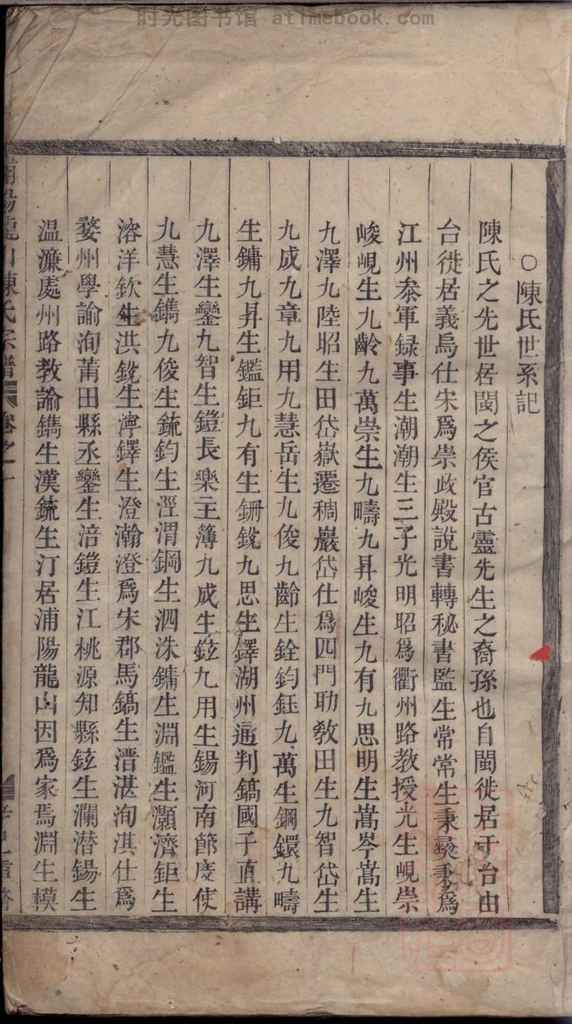 时光图书馆 atimebook.com
○陳氏世系記
陳氏之先世居閩之侯官古靈先生之裔孫也自閩徙居于台由
台徙居義烏仕宋爲崇政殿說書轉秘書監生常常生秉彞秉爲
江州叅軍録事生潮潮生三子光明昭爲衢州路教授光生峴崇
峻峴生九齡九萬崇生九疇九昇峻生九有九思明生嵩岑嵩生
九澤九陸昭生田岱嶽遷稠巖岱仕爲四門助教田生九智岱生
九成九章九用九慧岳生九俊九齡生銓鈞鈺九萬生鋼鐶九疇
生鏞九昇生鑑鉅九有生鉶銳九思生鐸湖州通判鎬國子直講
九澤生鑾九智生鎧長樂主簿九成生鉉九用生錫河南節度使
九慧生鐫九俊生銃鈞生涇渭鋼生泗洙鏞生淵鑑生灝濟鉅生
溶洋欽生洪銳生濘鐸生澄瀚澄爲宋郡馬鎬生溍湛洵淇仕爲
婺州學諭洵莆田縣丞鑾生涪鎧生江桃源知縣鉉生瀾潜錫生
温濂處州路教諭鐫生漢銃生汀居浦陽龍山因爲家焉淵生模
陽龍山陳氏宗譜 卷之一